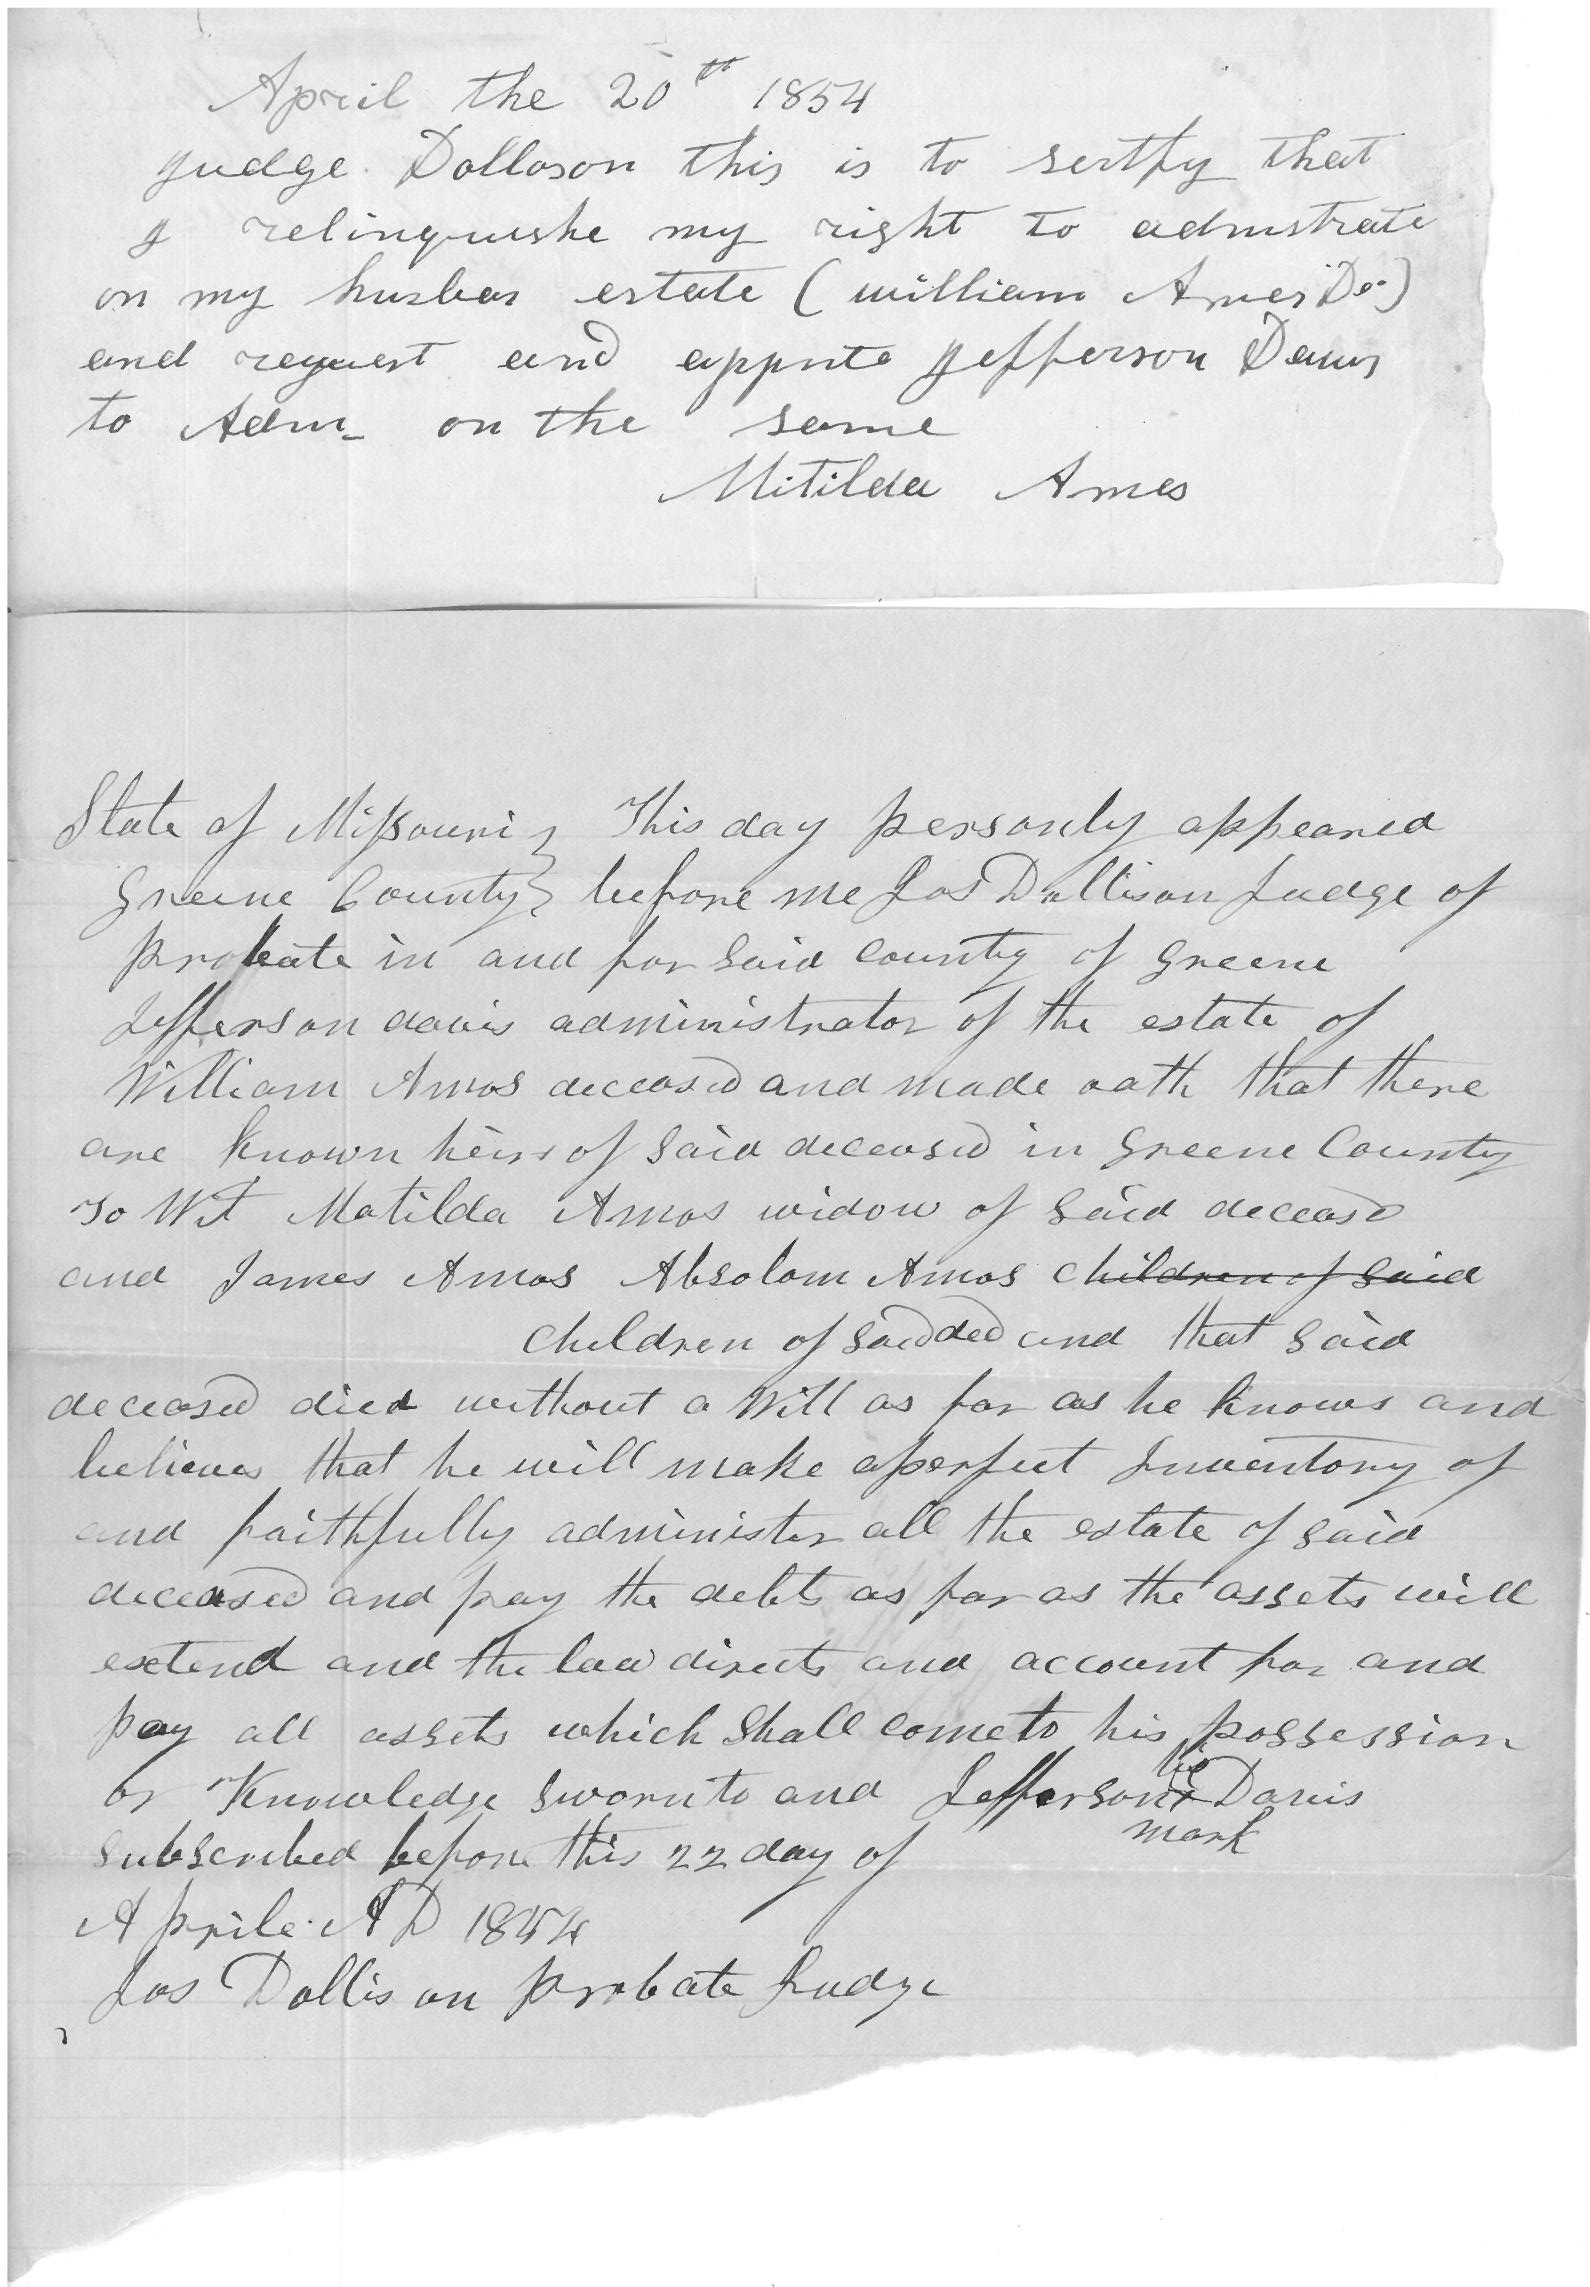 April the 20th 1854
Judge Dollason this is to sertfy that
I relinqueshe my right to admstrate
on my husban estate (william Ames De)
and reguest and appnte Jefferson Daves
to Adm on the same
Mitilda Ames
State of Missouri } This day personly appeared
Greene County } before me Jos Dollison Judge of
probate in and for said county of Greene
Jefferson davis administrator of the estate of
William Amos deceased and made oath that there
are known heirs of said deceased in Greene County
To Wit Matilda Amos widow of said deceasd
and James Amos Absolom Amos children of said
children of said decd and that said
deceased died without a Will as far as he knows and
believes that he will make aperfect Inventory of
and faithfully administer all the estate of said
deceased and pay the debts as far as the assets will
extend and the law directs and account for and
pay all assets which shall come to his possession
or Knowledge sworn to and Jefferson his x Davis
subscribed before this 22 day of mark
Aprile AD 1854
Jos Dollison Probate Judge